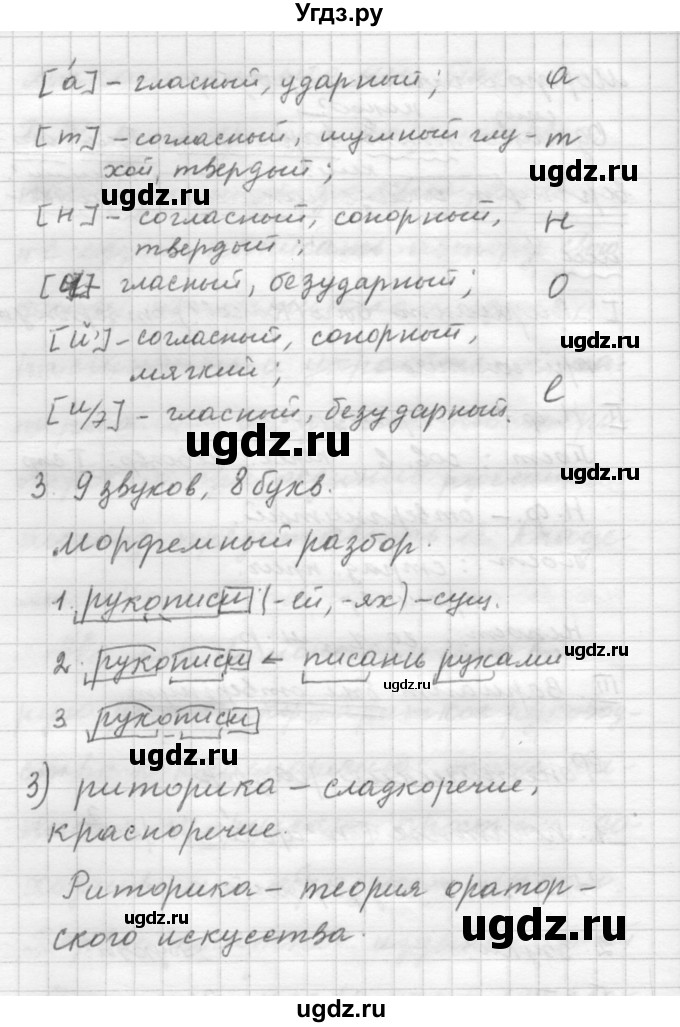 Угдз.ру
[а́] – гласный, ударный; а
[т] – согласный, шумный глу- т
хой, твердый;
ugdz.ru ugdz.ru
[н] – согласный, сонорный, н
твердый;
[ ] – гласный, безударный; о
[й'] – согласный, сонорный, ugdz.ru
мягкий;
[и/э] – гласный, безударный. е
ugdz.ru ugdz.ru
3. 9 звуков, 8 букв.
ugdz.ru
Морфемный разбор.
1. рукописи (-ей, -ях) – сущ.
ugdz.ru
2. рукописи ← писань руками
ugdz.ru
3 рукописи
ugdz.ru ugdz.ru
3) риторика – сладкоречие,
красноречие.
Риторика – теория оратор-
ugdz.ru ugdz.ru
ского искусства.
ugdz.ru